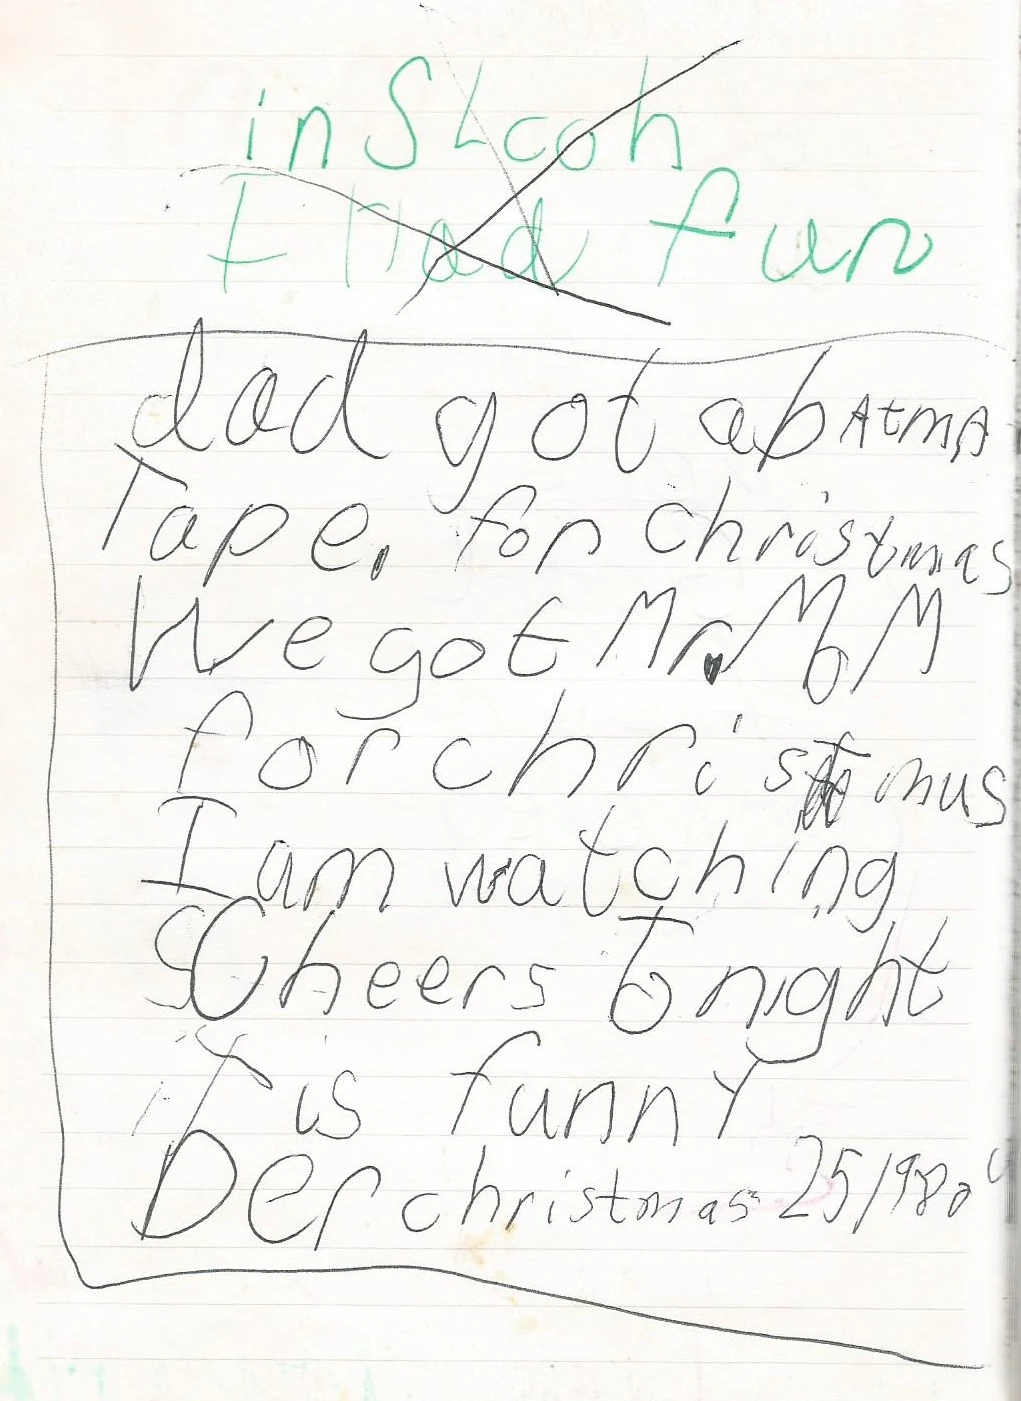 in SLcoh
I Had fun
dad got abAtmA
Tape. for christmas
We got Mr. MoM
for christmus
I am watching
SCheers Tonight
it is funny
Der christmas 25/1980